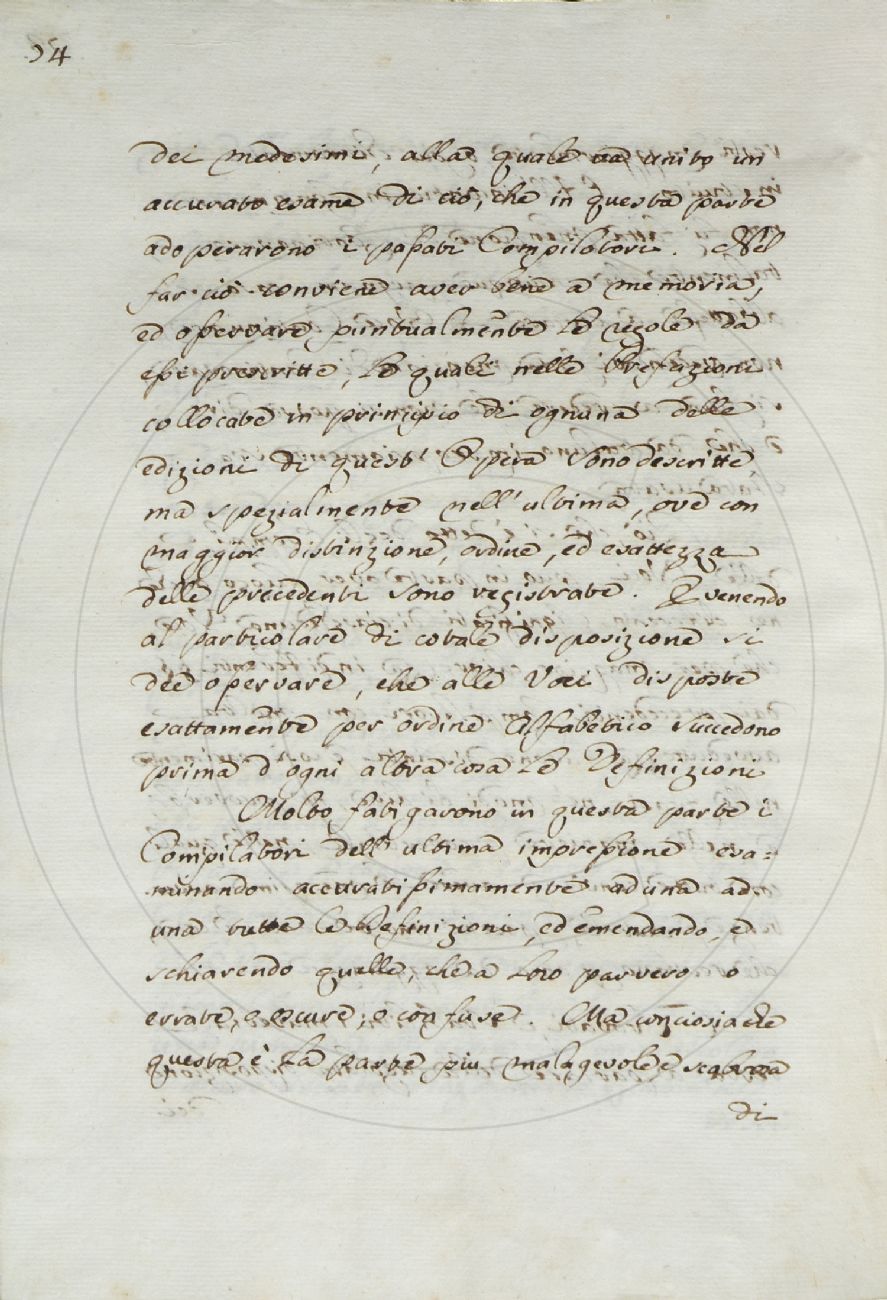 54
dei medesimi, alla quale va unito un
accurato esame di ciò, che in questa parte
adoperarono i passati Compilatori. Nel
far ciò conviene aver bene a memoria,
ed osservare puntualmente le regole da
essi prescritte, le quali nelle Prefazioni
collocate in principio di ognuna delle
edizioni di quest' Opera sono descritte
ma spezialmente nell' ultima, ove con
maggior distinzione, ordine, ed esattezza
delle precedenti sono registrate. E venendo
al particolare di cotale disposizione si
dee osservare, che alle Voci disposte
esattamente per ordine Alfabetico succedono
prima d'ogni altra cosa le Definizioni
Molto fatigarono in questa parte i
Compilatori dell' ultima impressione esa=
minando accuratissimamente ad una ad
una tutte le Definizioni, ed emendando, e
schiarendo quelle, che a loro parvero o
errate, o oscure, o confuse. Ma conciosiache
questa è la parte più malagevole e scabrosa
di